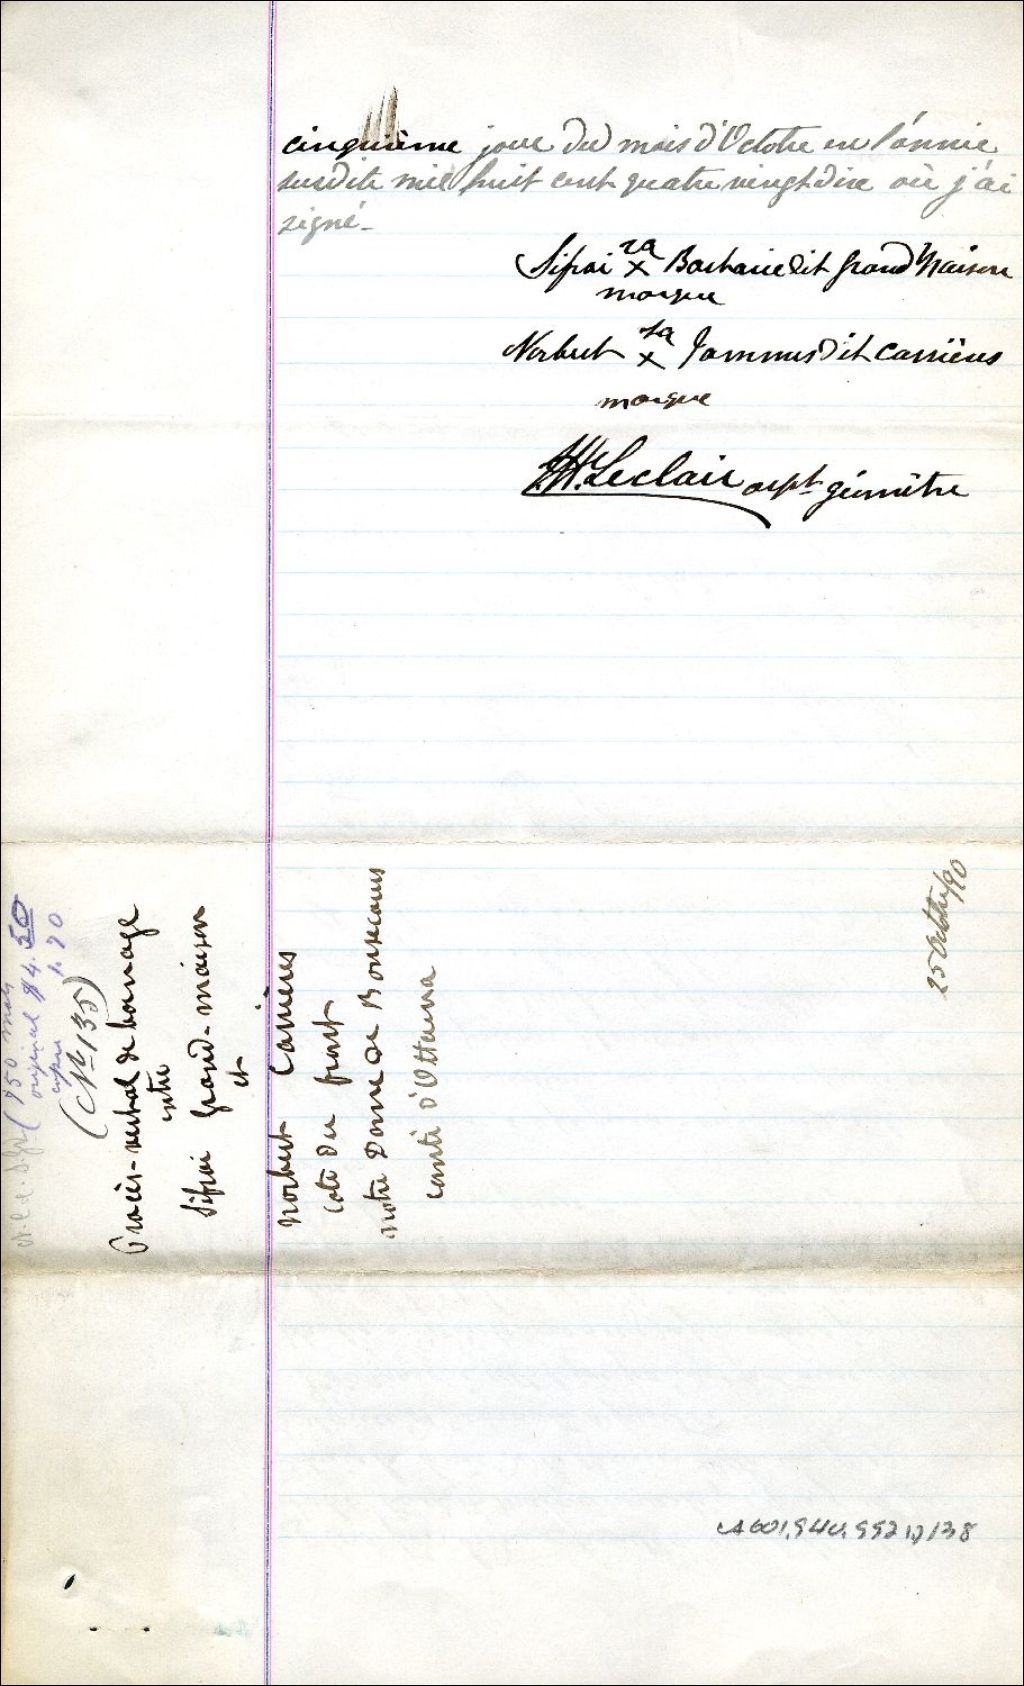 cinquième jour du mois d'Octobre en l'année
susdite mil huit cent quatre vingt dix où j'ai
signé_
Sifroi sa x Bastarie dit Grand Maison
marque
Norbert sa x Jammus dit Carrières
marque
Leclair arpt géomètre
(950 mots
original $4.50
copie 1.90
(No 135)
Procès-verbal de bornage
entre
Sifroi Grand-maison
et
Norbert Carrières
Coté du front
Notre Dame de Bonsecours
Comté d'Ottawa
25 Octobre/90
CA601,S40,SS2,D138